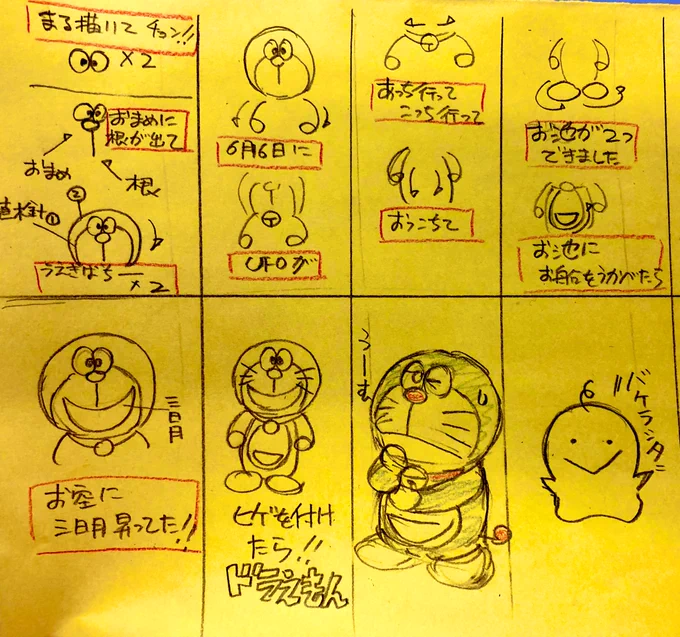 まる描いて チョン!!
×2
おまめに
根が出て
おまめ
根
②
①
うえきばち
×2
6月6日に
UFOが
あっち行って
こっち行って
おっこちて
お池が2つ
できました
お池に
お船をうかべたら
三日月
お空に
三日月昇ってた!!
ヒゲを付け
たら!!
ドラえもん
うーむ
バケラッタ